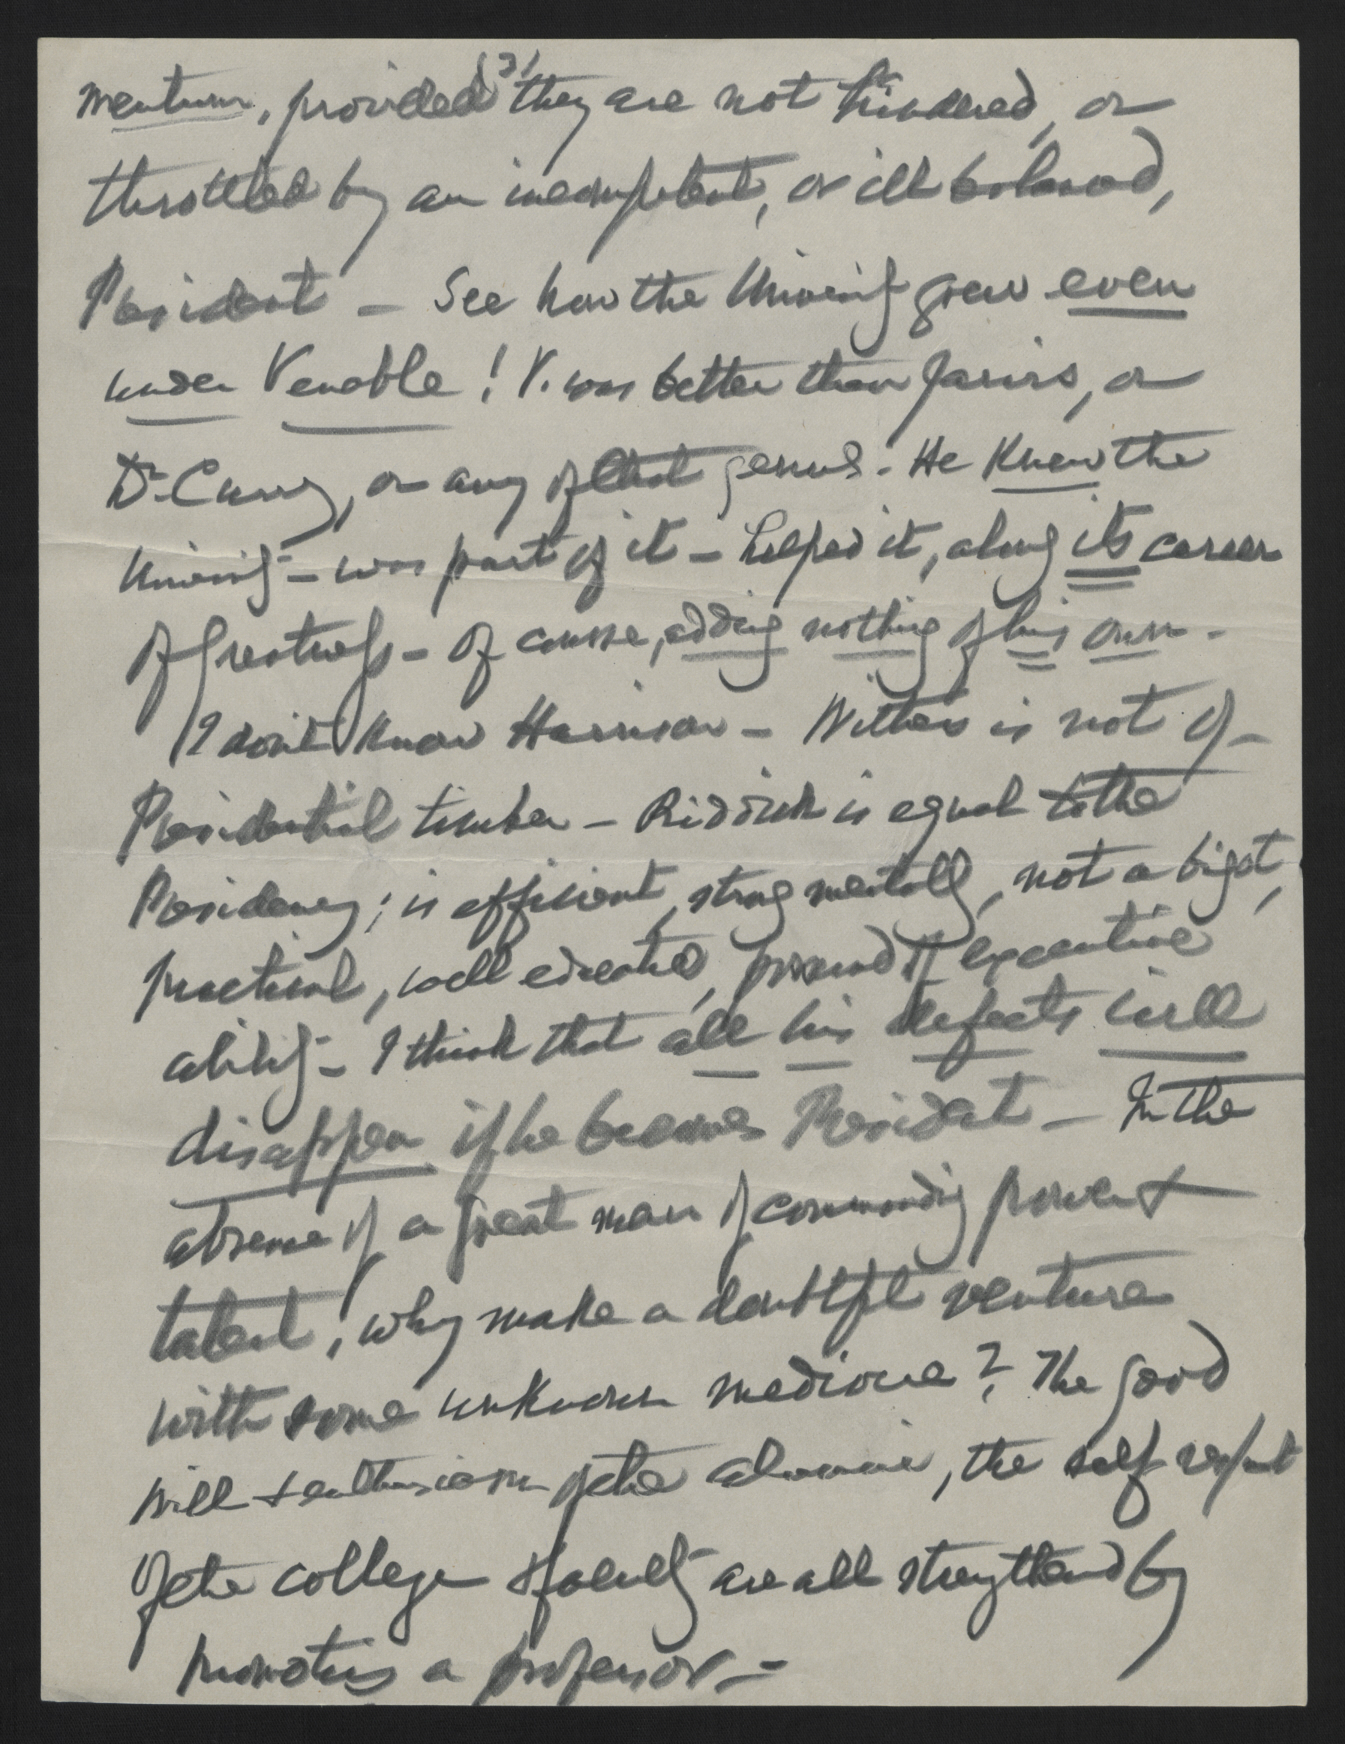 (3)
mentum, provided they are not hindered, or
throttled by an incompetent, or ill balanced,
President – See how the University grew even
under Venable! V. was better than Jarvis, or
Dr. Curry, or any of that genus. He Knew the
University – was part of it – helped it, along its career
of Greatness – of course, adding nothing of his own –
I don't know Harrison – Withers is not of –
Presidential timber – Riddick is equal to the
Presidency; is efficient, strong mentally, not a bigot,
practical, well educated, possessed of executive
ability – I think that all his defects will
disappear if he becomes President – In the
absence of a great man of commanding power &
talent, why make a doubtful venture
with some unknown mediocre? The good
will & enthusiasm of the alumni, the self respect
of the college & faculty are all strengthened by
promoting a professor –